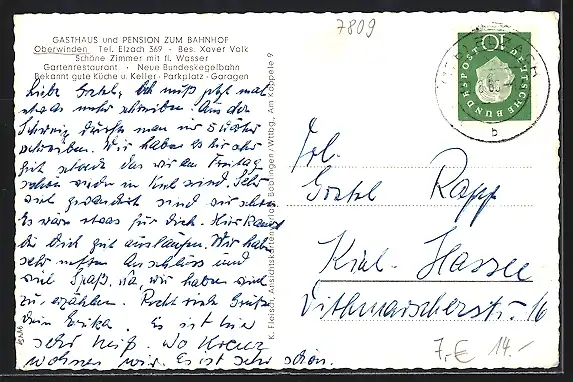 7809
GASTHAUS und PENSION ZUM BAHNHOF
Oberwinden Tel. Elzach 369 - Bes. Xaver Volk
Schöne Zimmer mit fl. Wasser
Gartenrestaurant · Neue Bundeskegelbahn
Bekannt gute Küche u. Keller · Parkplatz · Garagen
Liebe Gretel, Ich muß jetzt mal
etwas mehr schreiben. Aus der
Schweiz durfte man nur 5 Wörter
schreiben. Wir haben es hier sehr
gut schade das wir am Freitag
schon wieder in Kiel sind. Sehr
viel gewandert sind wir schon.
Es wäre etwas für Dich. Hier kannst
Du Dich gut auslaufen. Wir haben
sehr netten Anschluss und
viel Spaß, na, wir haben viel
zu erzählen. Recht viele Grüße
dein Erika. Es ist hier
sehr heiß. Wo Kreuz
wohnen wir. Es ist sehr schön.
K. Fleisch, Ansichtskartenverlag, Böblingen/Wttbg., Am Käppele 9
10
DEUTSCHE BUNDESPOST
b
Frl.
Gretel Rapp
Kiel-Hassee
Dithmarscherstr. 16
7,-€ 14.-